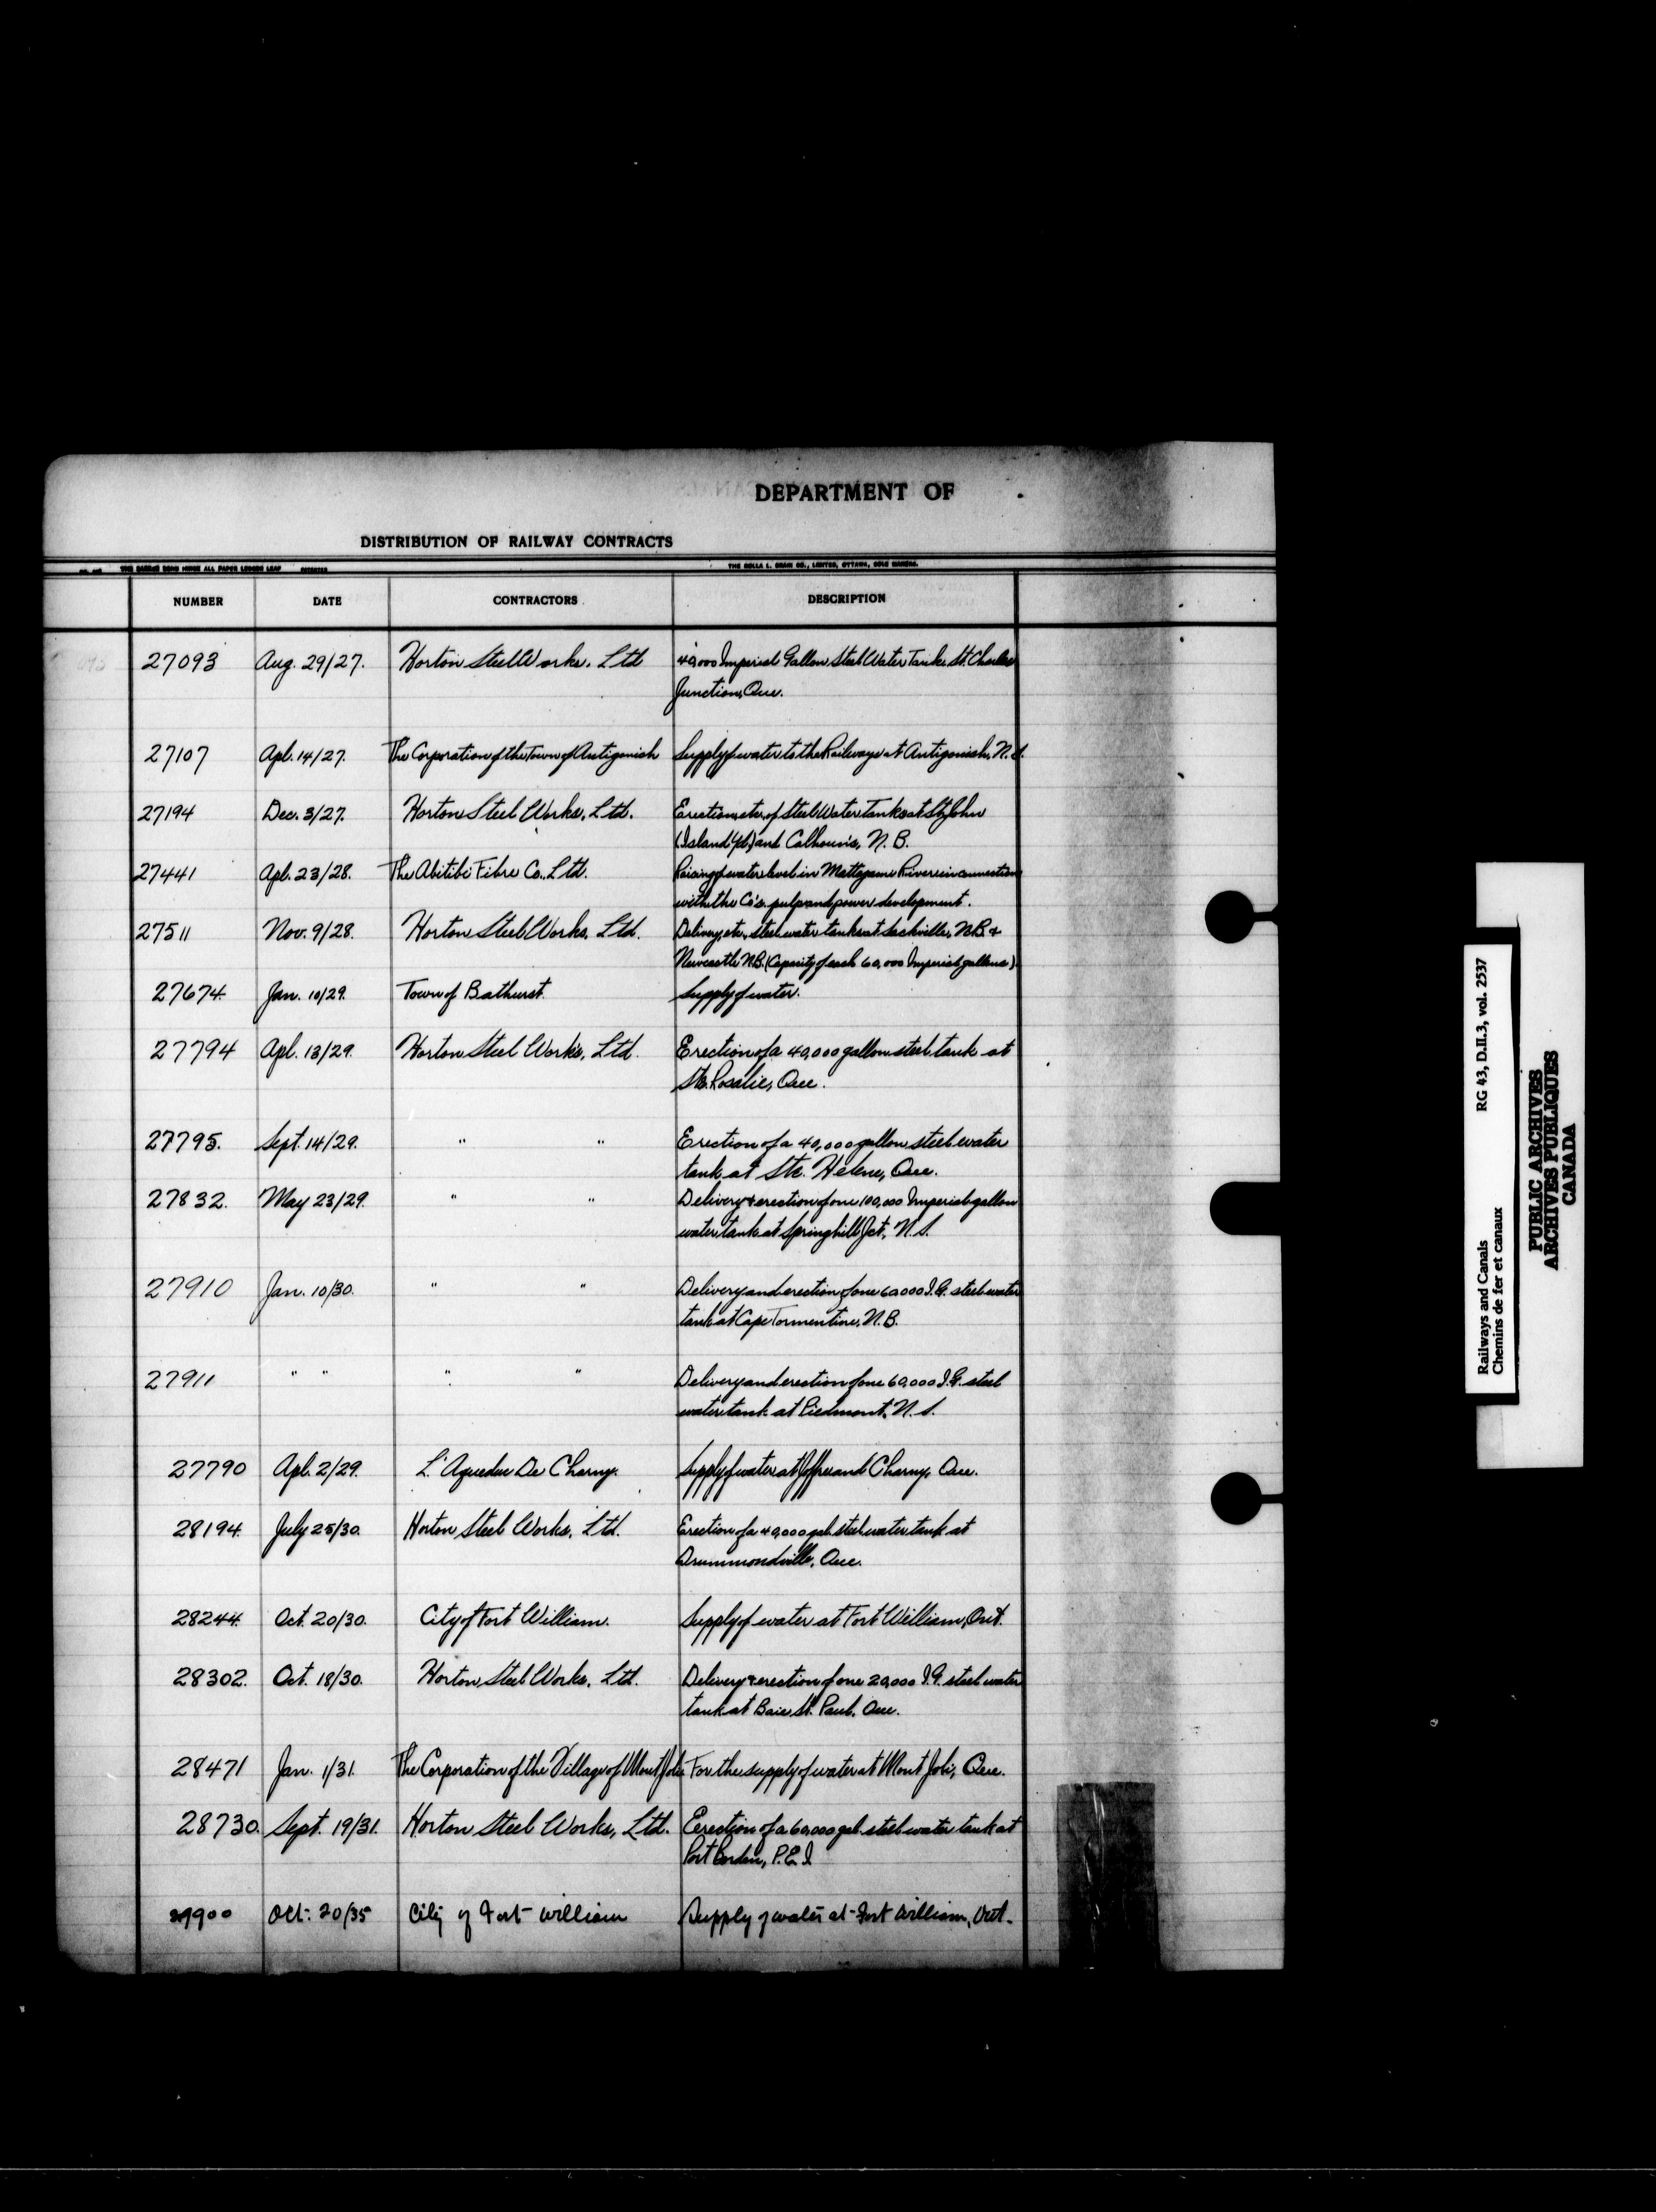 DEPARTMENT OF
DISTRIBUTION OF RAILWAY CONTRACTS
NUMBER DATE CONTRACTORS DESCRIPTION
27093 Aug. 29/27. Horton Steel Works, Ltd 40,000 Imperial Gallon Steel Water Tank, St. Charles
Junction, Que.
27107 Apl. 14/27. The Corporation of the Town of Antigonish Supply of water to the Railways at Antigonish, N.S.
27194 Dec. 3/27. Horton Steel Works, Ltd. Erection, etc., of Steel Water Tanks at St. John
(Island Yd.) and Calhoun's, N. B.
27441 Apl. 23/28. The Abitibi Fibre Co., Ltd. Raising of water level in Mattagami River in connection
with the Co's. pulp and power development.
27511 Nov. 9/28. Horton Steel Works, Ltd. Delivery, etc., steel water tanks at Sackville, N.B. &
Newcastle N.B. (Capacity of each 60,000 Imperial gallons)
27674. Jan. 10/29. Town of Bathurst. Supply of water.
27794 Apl. 13/29. Horton Steel Works, Ltd. Erection of a 40,000 gallon steel tank at
Ste. Rosalie, Que.
27795. Sept. 14/29. " " Erection of a 40,000 gallon steel water
tank at Ste. Helene, Que.
27832. May 23/29. " " Delivery & erection of one 100,000 Imperial gallon
water tank at Springhill Jct, N.S.
27910 Jan. 10/30. " " Delivery and erection of one 60,000 I.G. steel water
tank at Cape Tormentine, N.B.
27911 " " " " Delivery and erection of one 60,000 I.G. steel
water tank at Piedmont, N.S.
27790 Apl. 2/29. L'Aqueduc De Charny. Supply of water at Joffre and Charny, Que.
28194. July 25/30. Horton Steel Works, Ltd. Erection of a 40,000 gal. steel water tank at
Drummondville, Que.
28244. Oct. 20/30. City of Fort William. Supply of water at Fort William, Ont.
28302. Oct. 18/30. Horton Steel Works, Ltd. Delivery & erection of one 20,000 I.G. steel water
tank at Baie St. Paul, Que.
28471 Jan. 1/31. The Corporation of the Village of Mont Joli For the supply of water at Mont Joli, Que.
28730. Sept. 19/31. Horton Steel Works, Ltd. Erection of a 60,000 gal. steel water tank at
Port Borden, P.E.I
Oct. 20/35 City of Fort William Supply of water at Fort William, Ont.
Railways and Canals RG 43, D.II.3, vol. 2537
Chemins de fer et canaux
PUBLIC ARCHIVES
ARCHIVES PUBLIQUES
CANADA